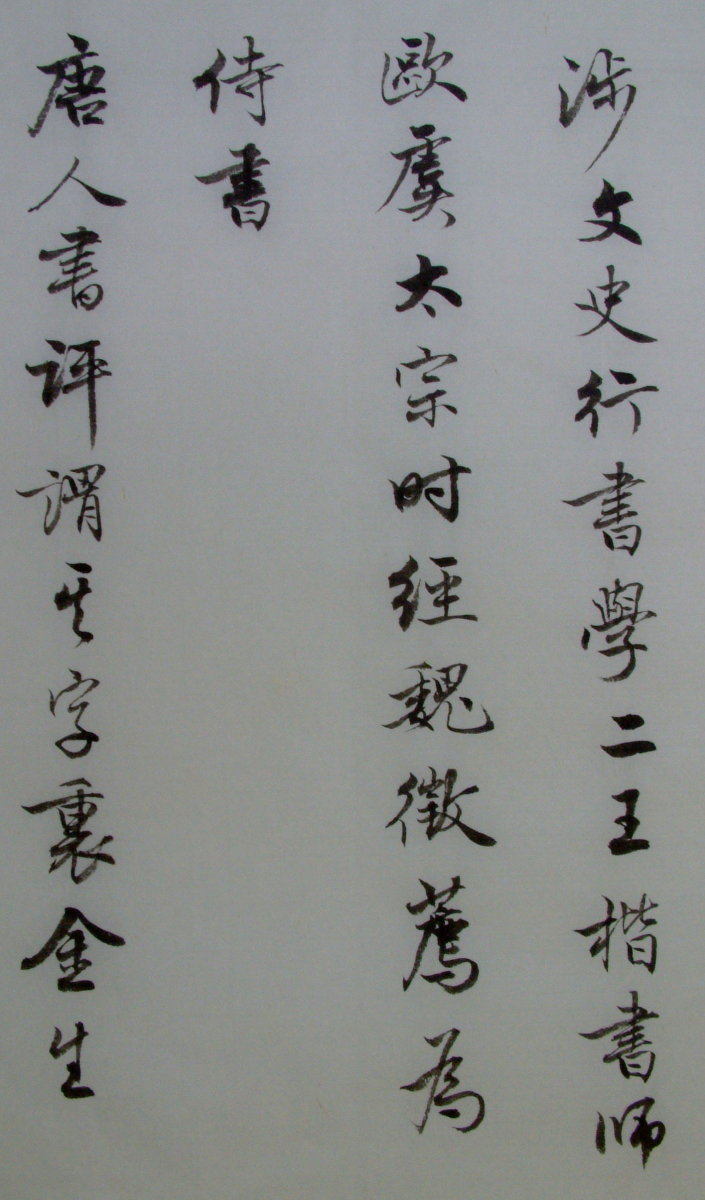 涉文史行書學二王楷書师
歐虞太宗时經魏徵薦為
侍書
唐人書評謂其字裏金生